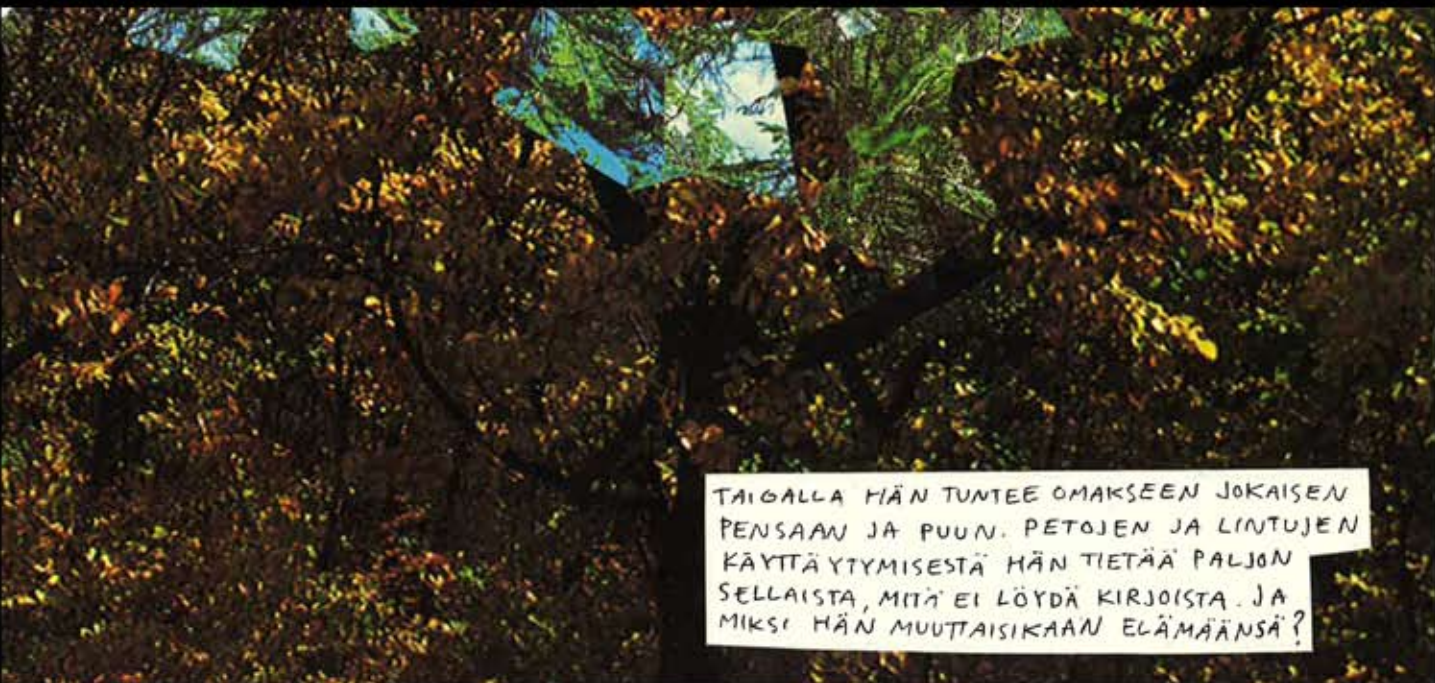 TAIGALLA HÄN TUNTEE OMAKSEEN JOKAISEN
PENSAAN JA PUUN. PETOJEN JA LINTUJEN
KÄYTTÄYTYMISESTÄ HÄN TIETÄÄ PALJON
SELLAISTA, MITÄ EI LÖYDÄ KIRJOISTA. JA
MIKSI HÄN MUUTTAISIKAAN ELÄMÄÄNSÄ?